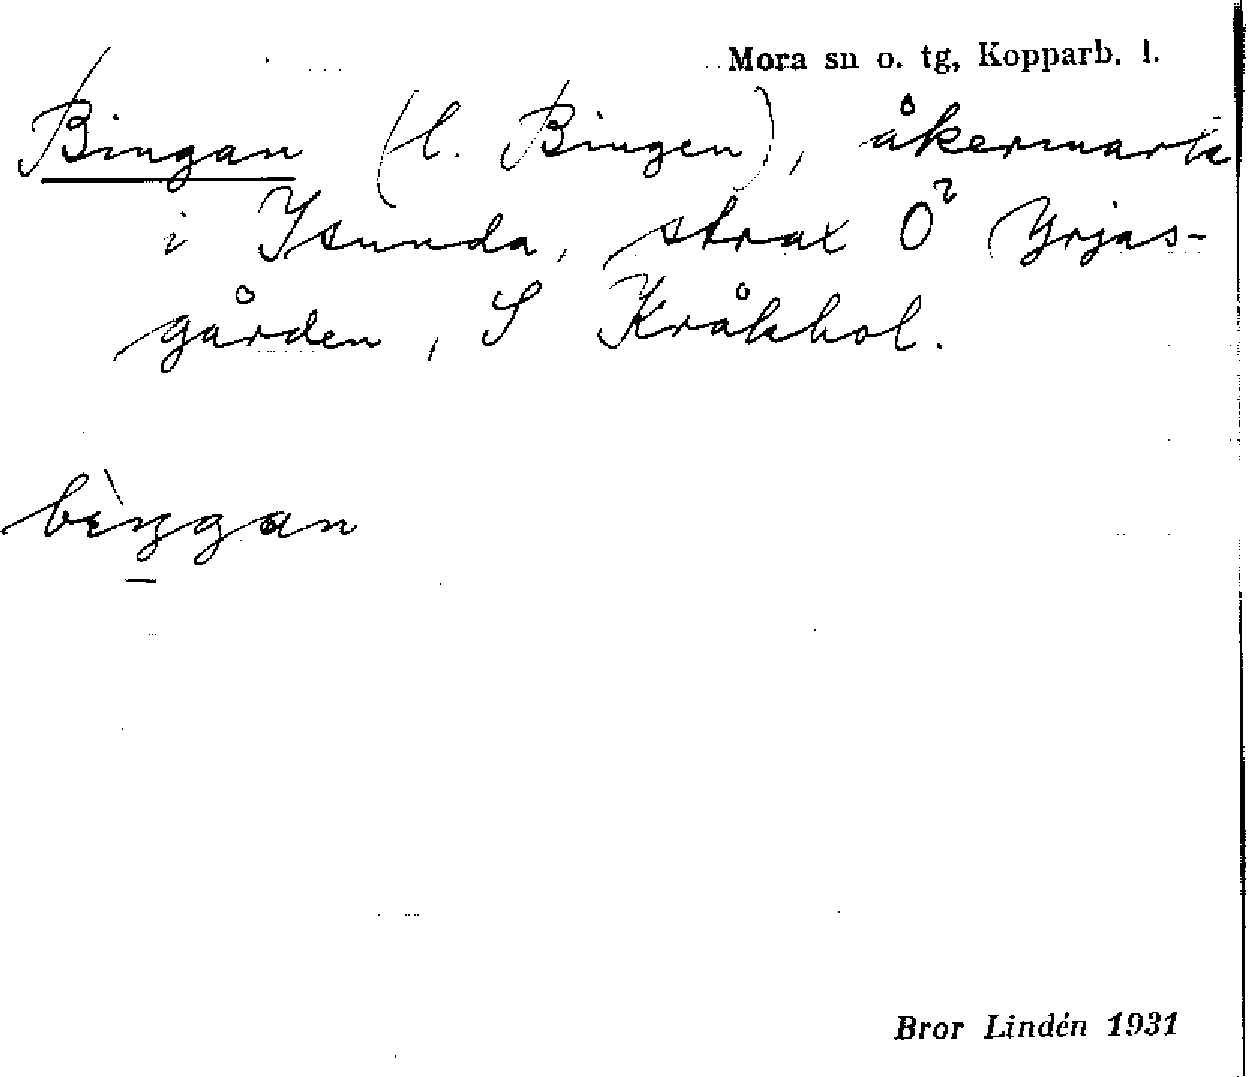 Mora sn o. tg, Kopparb. l.
Bingan (l. Bingen), åkermark
i Isunda, strax Ö Yrjas-
gården, S Kråkhol.
bìŋgan
Bror Lindén 1931